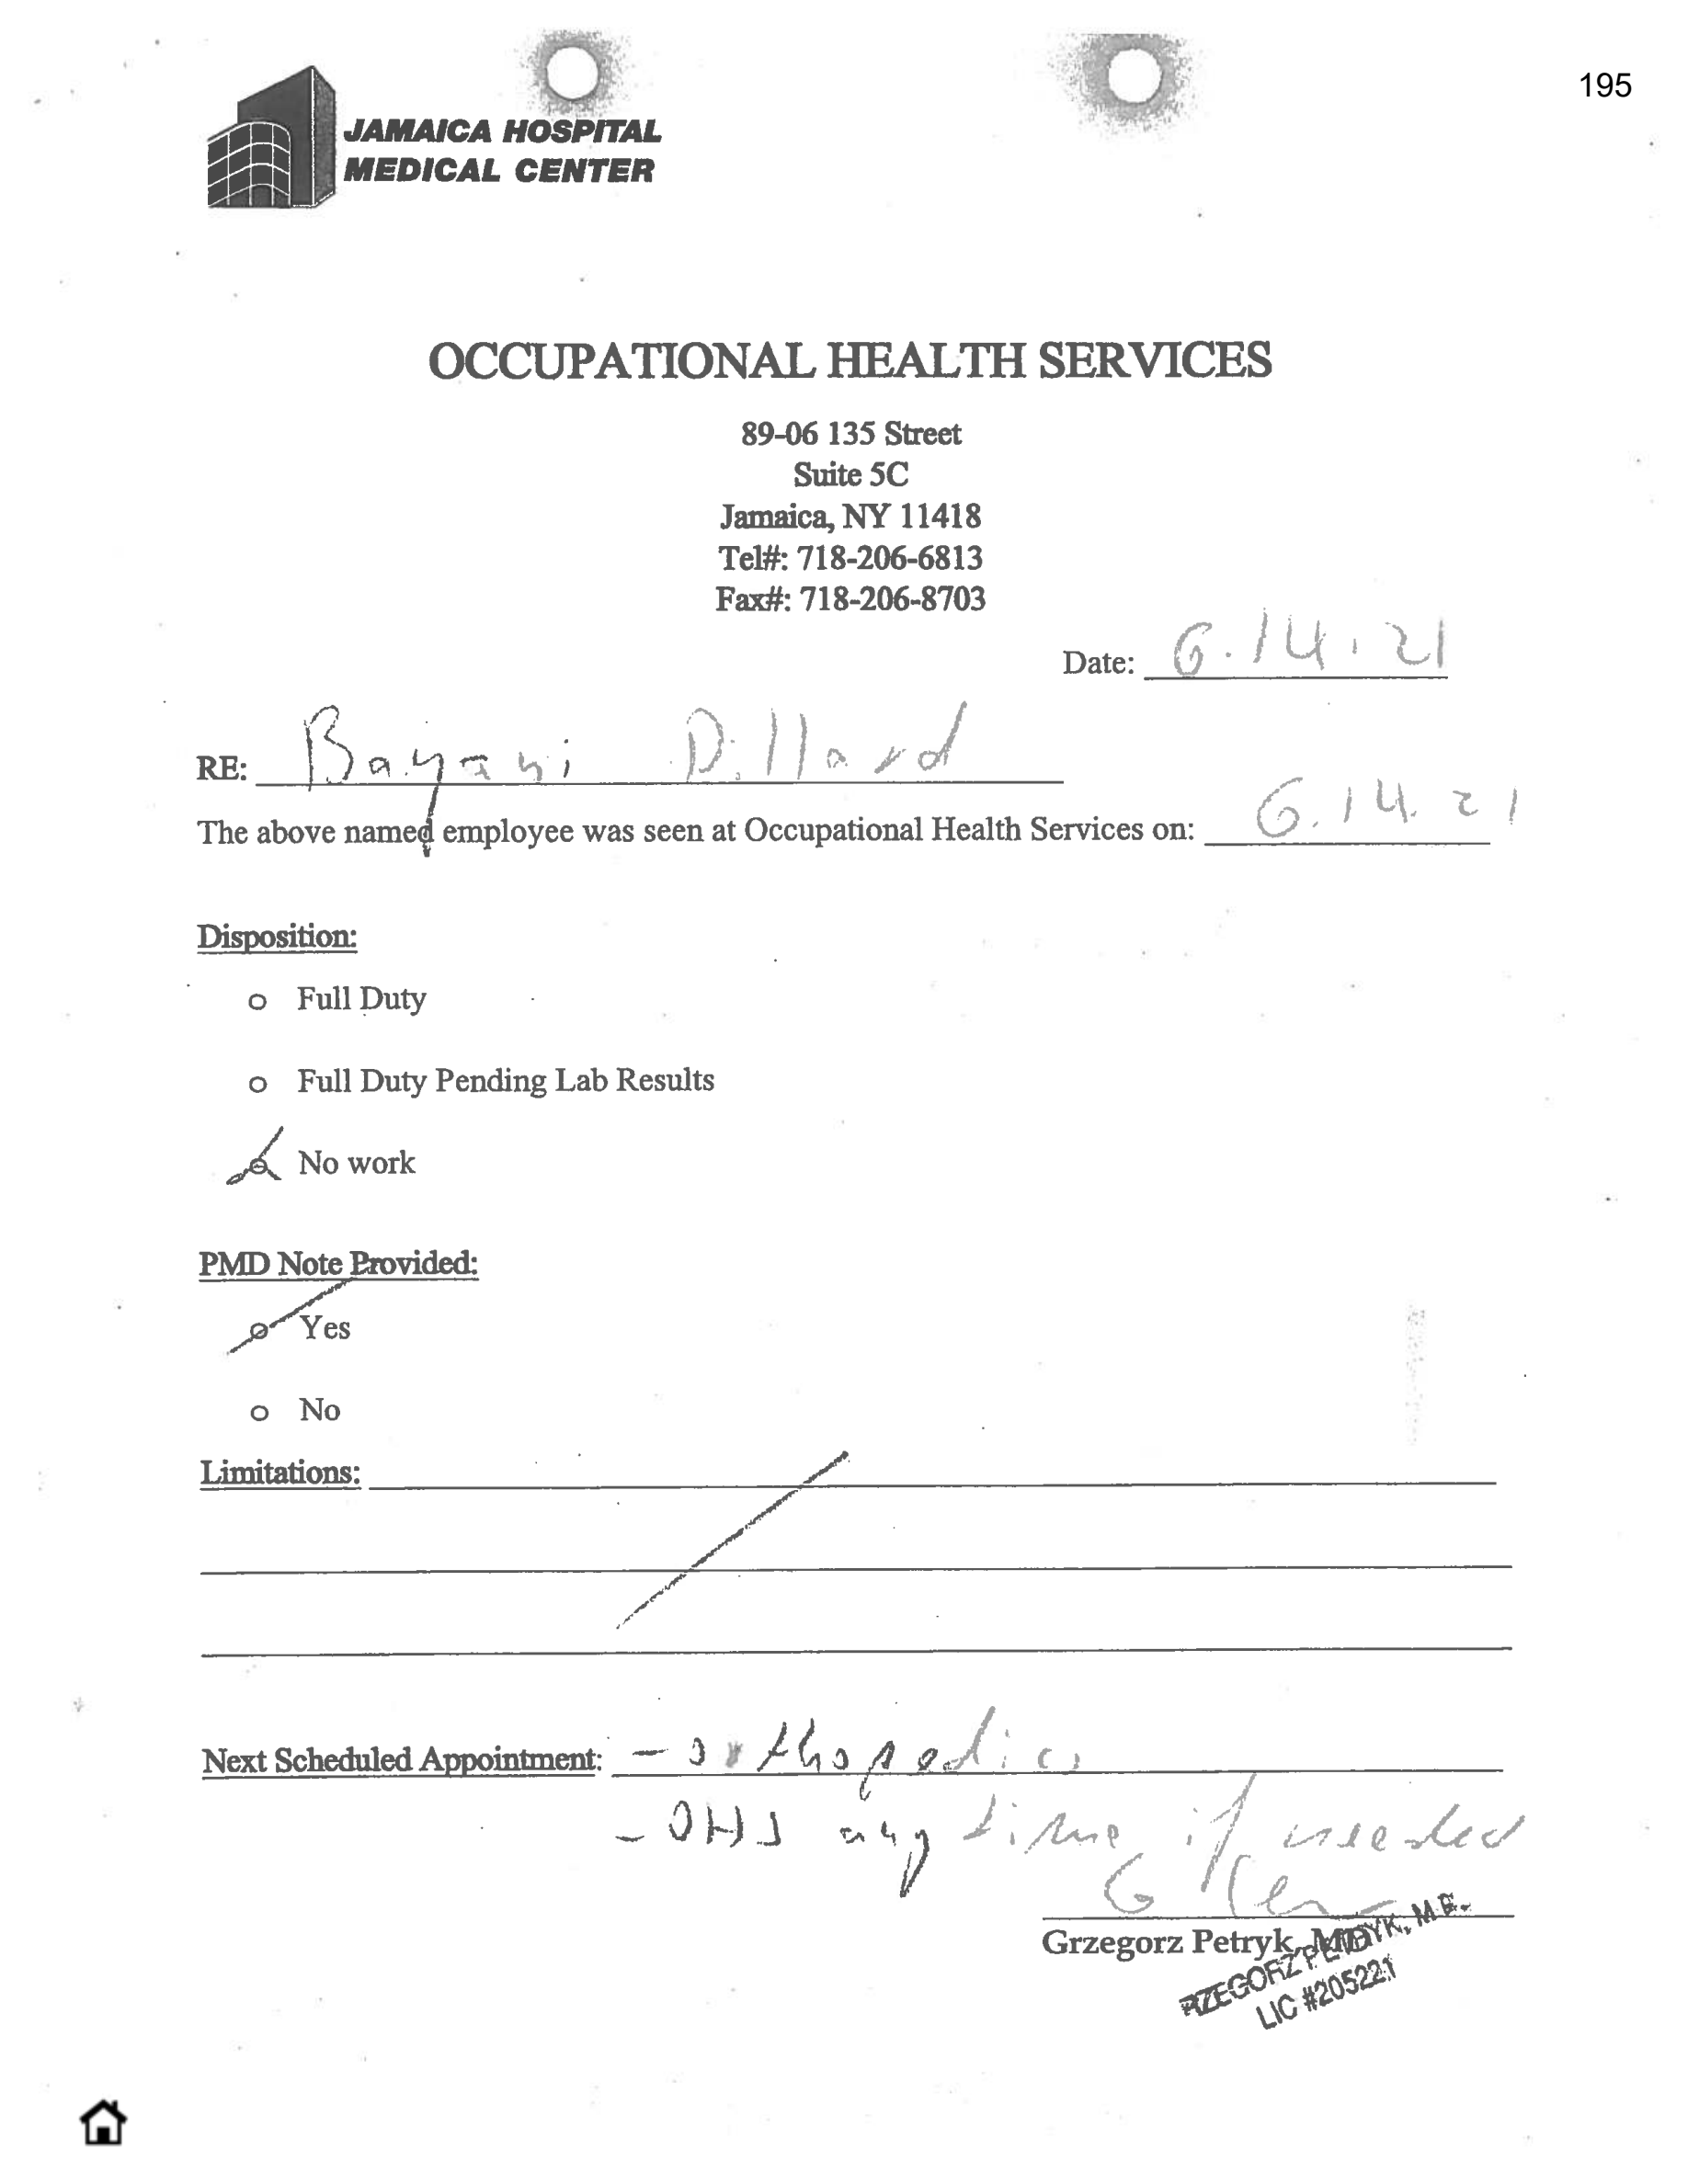 195
JAMAICA HOSPITAL
MEDICAL CENTER
OCCUPATIONAL HEALTH SERVICES
89-06 135 Street
Suite 5C
Jamaica, NY 11418
Tel#: 718-206-6813
Fax#: 718-206-8703
Date: 6.14.21
RE: Bayani Dillard
The above named employee was seen at Occupational Health Services on: 6.14.21
Disposition:
o Full Duty
o Full Duty Pending Lab Results
o No work
PMD Note Provided:
o Yes
o No
Limitations:
Next Scheduled Appointment: - orthopedics
- OHS any time if needed
Grzegorz Petryk, MD
RZEGORZ PETRYK, M.D.
LIC #205221